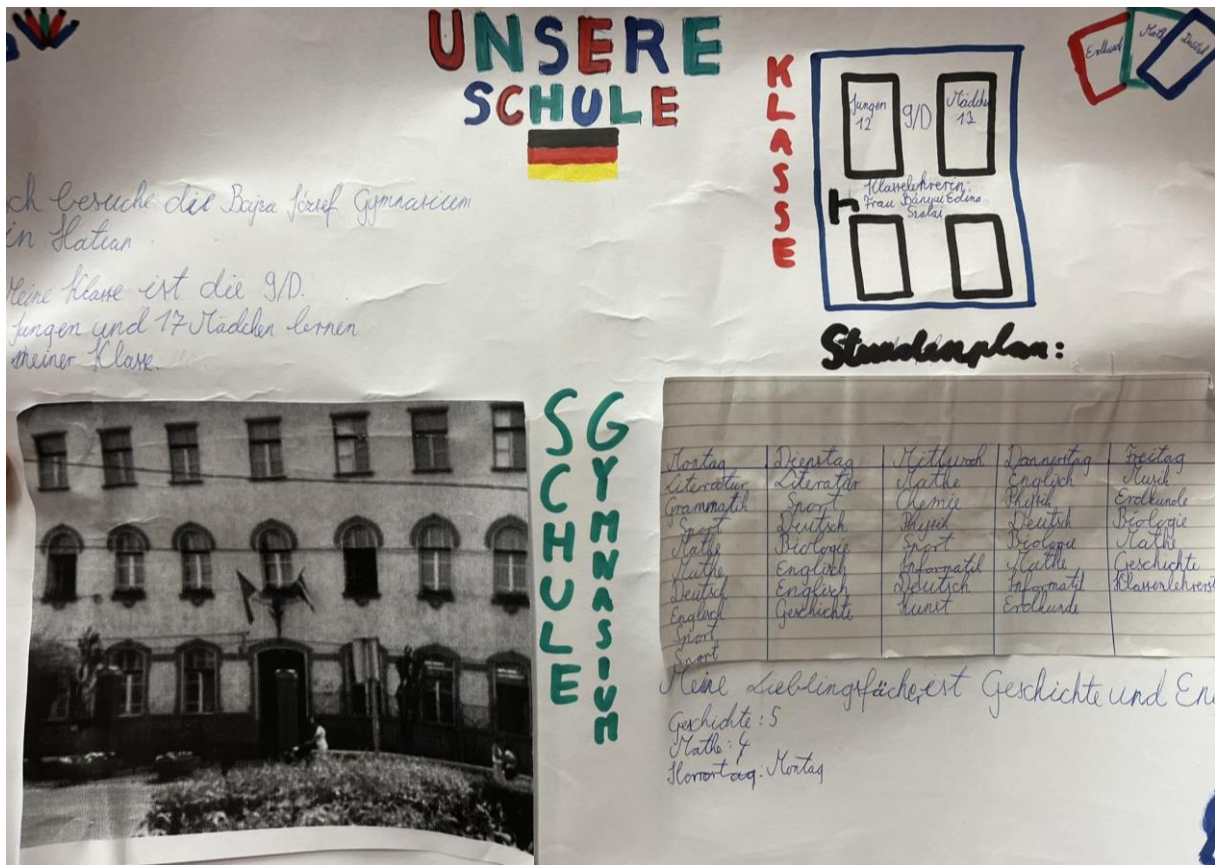 UNSERE
SCHULE
KLASSE
Jungen
12
9/D
Mädche
17
Klasselehrerin:
Frau Bányai Edina
Szalai
Erdkund
Math
Deutsch
ch besuche die Bajza József Gymnasium
in Hatvan
Meine Klasse ist die 9/D.
Jungen und 17 Mädchen lernen
meiner Klasse.
SCHULE
GYMNASIUM
Stundenplan:
Montag Dienstag Mittwoch Donnerstag Freitag
Literatur Literatur Mathe Englisch Musik
Grammatik Sport Chemie Physik Erdkunde
Sport Deutsch Physik Deutsch Biologie
Mathe Biologie Sport Biologie Mathe
Mathe Englisch Informatik Mathe Geschichte
Deutsch Englisch Deutsch Informatik Klassenlehrerst
Englisch Geschichte Kunst Erdkunde
Sport
Sport
Meine Lieblingsfächer ist Geschichte und En
Geschichte: 5
Mathe: 4
Horrortag: Montag